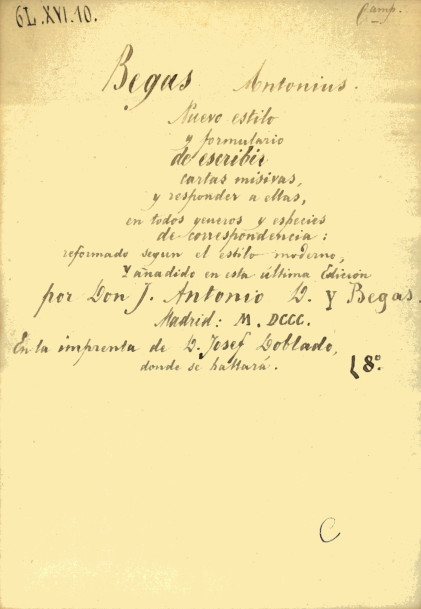 6L.XVI.10.
Camp.
Begas Antonius.
Nuevo estilo
y formulario
de escribir
cartas misivas,
y responder a ellas,
en todos generos y especies
de correspondencia:
reformado segun el estilo moderno,
Y añadido en esta última Edición
por Don J. Antonio D. Y Begas.
Madrid: M.DCCC.
En la imprenta de D. Josef Doblado,
donde se hallará.
8º
C